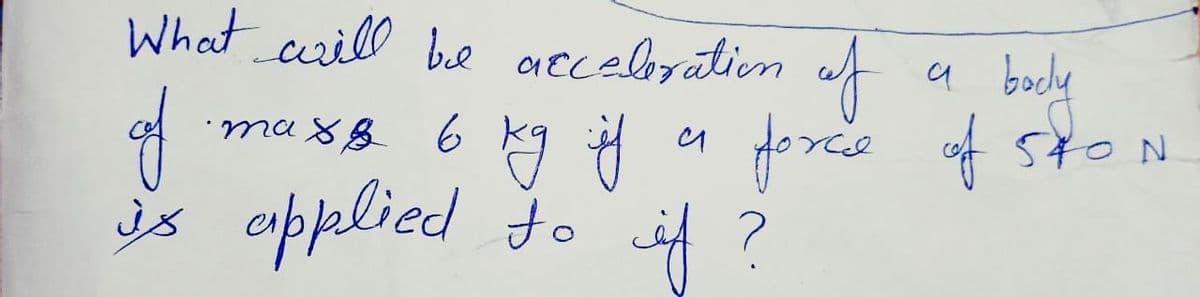 What will be acceleration of a body
of mass 6 kg if a force of 540 N
is applied to if ?